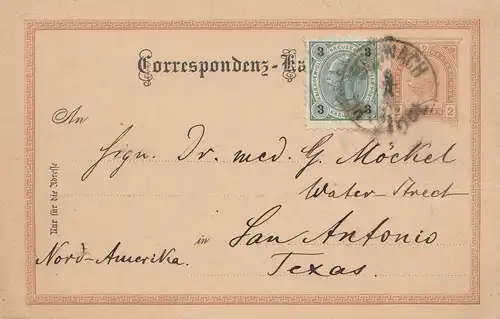 Correspondenz-Ka
3 3
3 3
2 2
An
Sign. Dr. med. G. Möckel
Water-Street
in San Antonio
Nord-Amerika.
Texas.
Nur für die Adresse